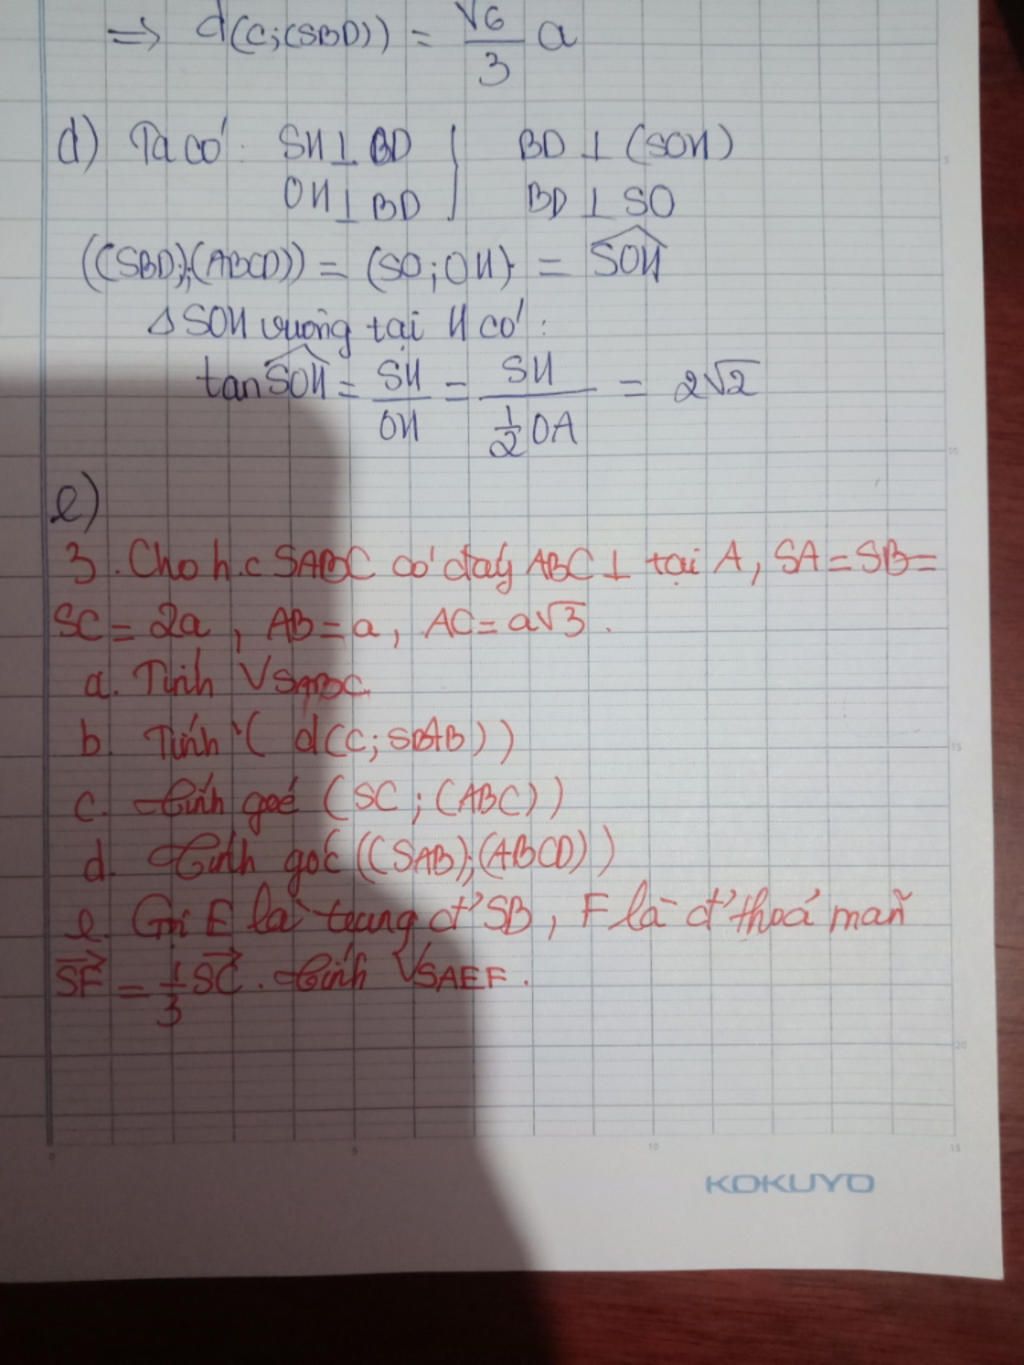 ⇒ d(C;(SBD)) = √6/3 a
d) Ta có: SH ⊥ BD } BD ⊥ (SOH)
OH ⊥ BD } BD ⊥ SO
((SBD);(ABCD)) = (SO;OH) = SOH
Δ SOH vuông tại H có:
tan SOH = SH/OH = SH/(1/2 OA) = 2√2
e)
3. Cho h.c SABC có đáy ABC ⊥ tại A, SA = SB =
SC = 2a, AB = a, AC = a√3.
a. Tính VSABC
b. Tính d(C; SAB))
c. Tính góc (SC; (ABC))
d. Tính góc ((SAB);(ABCD))
e. Gọi E là trung đ' SB, F là đ' thoả mãn
SF = 1/3 SC. Tính VSAEF.
KOKUYO